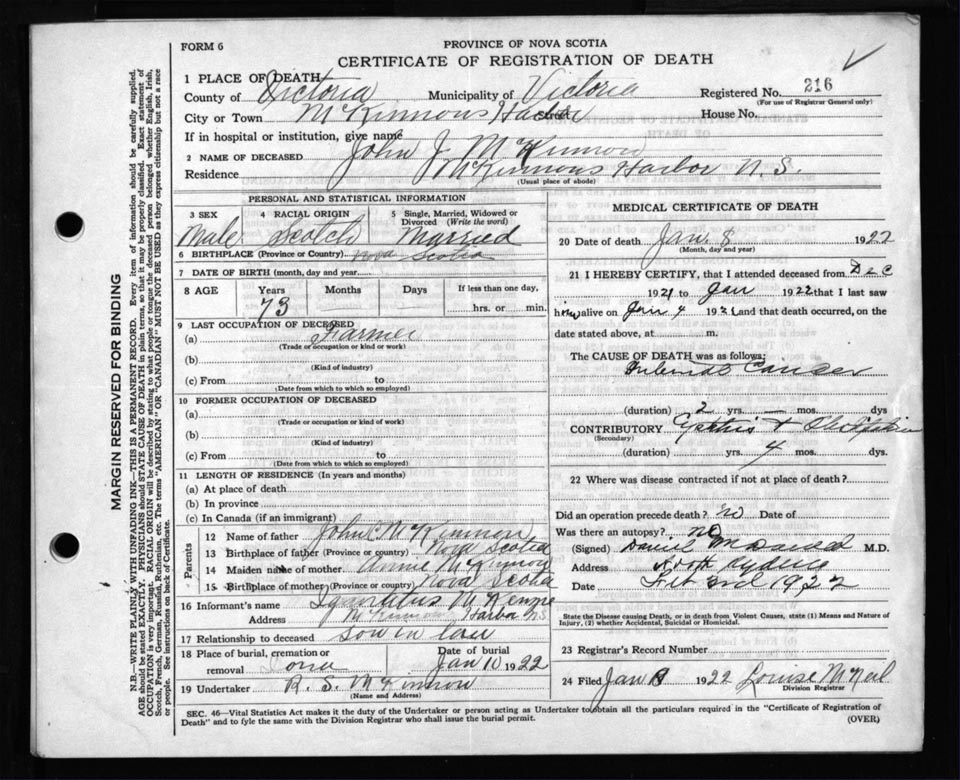 FORM 6
PROVINCE OF NOVA SCOTIA
CERTIFICATE OF REGISTRATION OF DEATH
1 PLACE OF DEATH
County of Victoria Municipality of Victoria Registered No. 216
(For use of Registrar General only)
City or Town McKinnons Harbor House No.
If in hospital or institution, give name
2 NAME OF DECEASED John J. McKinnon
Residence McKinnons Harbor N.S.
(Usual place of abode)
PERSONAL AND STATISTICAL INFORMATION
3 SEX 4 RACIAL ORIGIN 5 Single, Married, Widowed or Divorced (Write the word)
Male Scotch Married
6 BIRTHPLACE (Province or Country) Nova Scotia
7 DATE OF BIRTH (month, day and year)
8 AGE Years Months Days If less than one day,
73 hrs. or min.
9 LAST OCCUPATION OF DECEASED
(a) Farmer
(Trade or occupation or kind of work)
(b)
(Kind of industry)
(c) From to
(Date from which to which so employed)
10 FORMER OCCUPATION OF DECEASED
(a)
(Trade or occupation or kind of work)
(b)
(Kind of industry)
(c) From to
(Date from which to which so employed)
11 LENGTH OF RESIDENCE (In years and months)
(a) At place of death
(b) In province
(c) In Canada (if an immigrant)
Parents
12 Name of father John C McKinnon
13 Birthplace of father (Province or country) Nova Scotia
14 Maiden name of mother Annie McKinnon
15 Birthplace of mother (Province or country) Nova Scotia
16 Informant's name Ignatius McKenzie
Address McKinnon Harbor N.S
17 Relationship to deceased son in law
18 Place of burial, cremation or removal Iona Date of burial Jan 10 1922
19 Undertaker R. S. McKinnon
(Name and Address)
MEDICAL CERTIFICATE OF DEATH
20 Date of death Jan 8 1922
(Month, day and year)
21 I HEREBY CERTIFY, that I attended deceased from Dec
1921 to Jan 1922 that I last saw
him alive on Jan 4 192 and that death occurred, on the
date stated above, at m.
The CAUSE OF DEATH was as follows:
Cancer
(duration) 2 yrs. — mos. dys
CONTRIBUTORY
(Secondary)
(duration) yrs. 4 mos. dys.
22 Where was disease contracted if not at place of death?
Did an operation precede death? no Date of
Was there an autopsy? no
(Signed) Daniel M.D.
Address North Sydney
Date Feb 3rd 1922
State the Disease causing Death, or in death from Violent Causes, state (1) Means and Nature of Injury, (2) whether Accidental, Suicidal or Homicidal.
23 Registrar's Record Number
24 Filed Jan 1922 Louise McNeil
Division Registrar
SEC. 46—Vital Statistics Act makes it the duty of the Undertaker or person acting as Undertaker to obtain all the particulars required in the "Certificate of Registration of
Death" and to fyle the same with the Division Registrar who shall issue the burial permit.
(OVER)
MARGIN RESERVED FOR BINDING
N.B.—WRITE PLAINLY WITH UNFADING INK—THIS IS A PERMANENT RECORD. Every item of information should be carefully supplied.
AGE should be stated EXACTLY. PHYSICIANS should STATE CAUSE OF DEATH in plain terms, so that it may be properly classified. Exact statement of
OCCUPATION is very important. RACIAL ORIGIN will be described by stating to what people or tongue the deceased person belonged whether English, Irish,
Scotch, French, German, Russian, Ruthenian, etc. The terms "AMERICAN" OR "CANADIAN" MUST NOT BE USED as they express citizenship but not a race
or people. See instructions on back of Certificate.